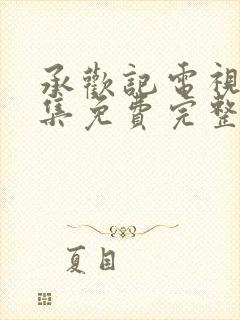 承歡記電視
集免費完整
夏目